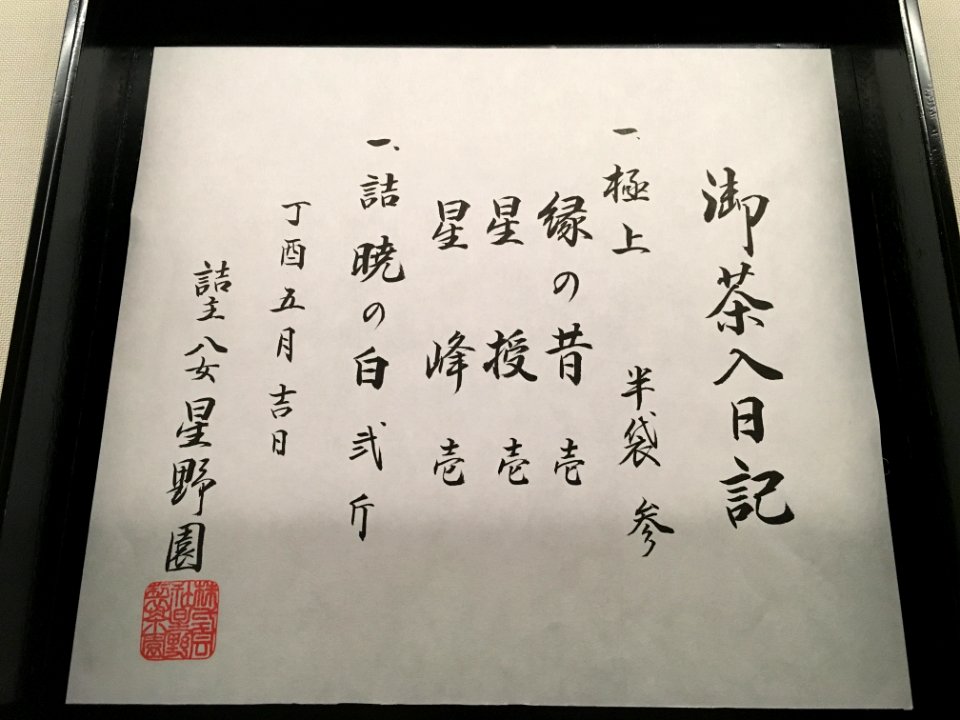 御茶入日記
一、極上 半袋 参
縁の昔 壱
星授 壱
星峰 壱
一、詰 暁の白 弐斤
丁酉五月吉日
詰主 八女 星野園
株式会社星野製茶園